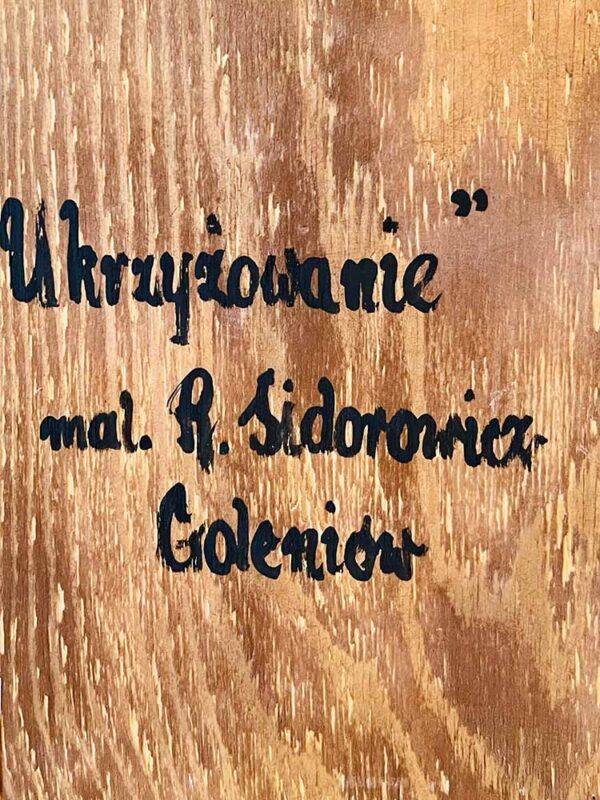 Ukrzyżowanie”
mal. R. Sidorowicz
Goleniów